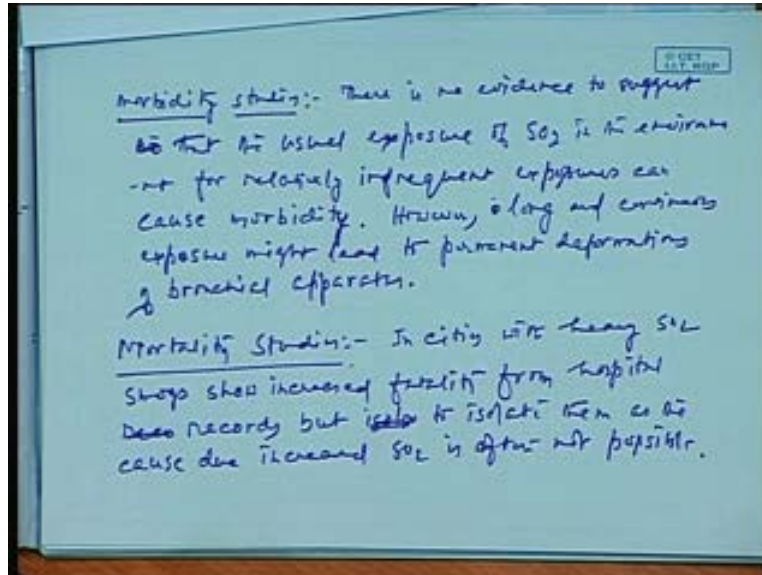 © CET
I.I.T. KGP
Morbidity studies:- There is no evidence to suggest
that the usual exposure of SO2 in the environme
-nt for relatively infrequent exposures can
cause morbidity. However, long and continuous
exposure might lead to permanent deformations
of bronchial apparatus.
Mortality Studies:- In cities with heavy SO2
smogs show increased fatality from hospital
records but to isolate them as the
cause due increased SO2 is often not possible.